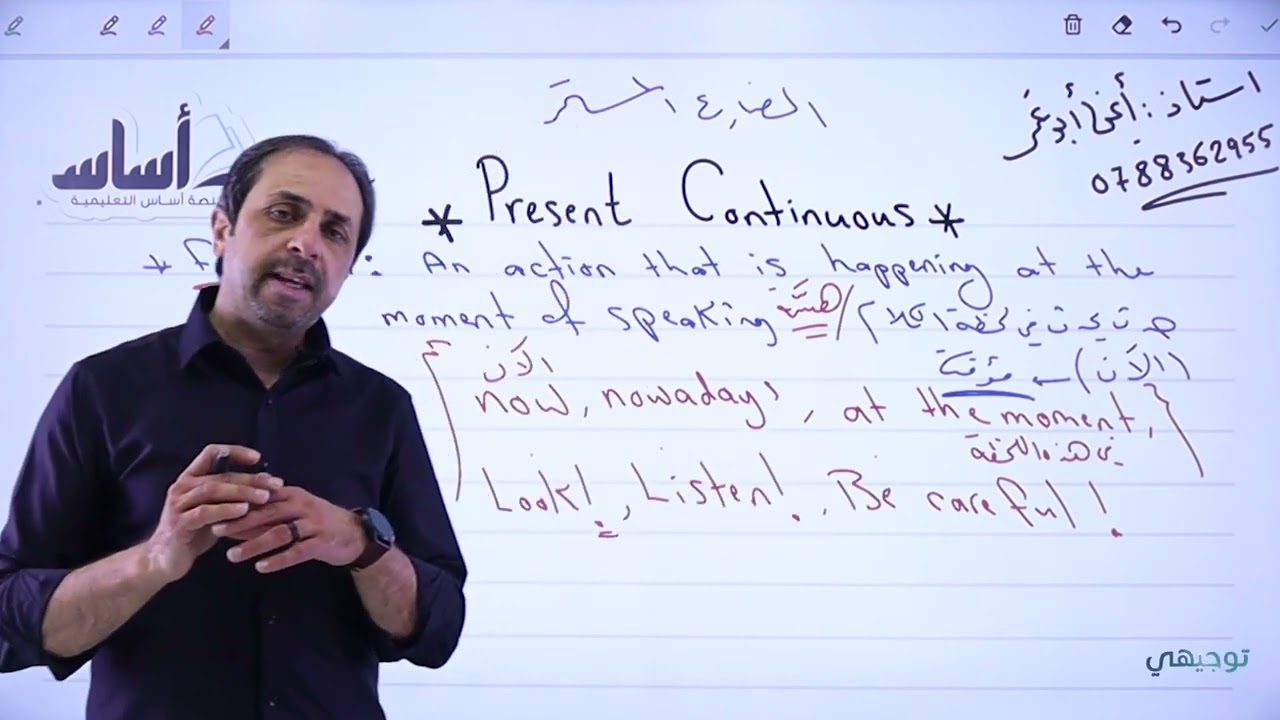 المضارع المستمر
استاذ: أغر أبو غر
0788362955
أساس
منصة أساس التعليمية
* Present Continuous *
* : An action that is happening at the
moment of speaking / حدث يحدث في لحظة الكلام
(الآن) ← مؤقتة
الآن
now, nowadays, at the moment,
في هذه اللحظة
Look!, Listen!, Be careful!
توجيهي